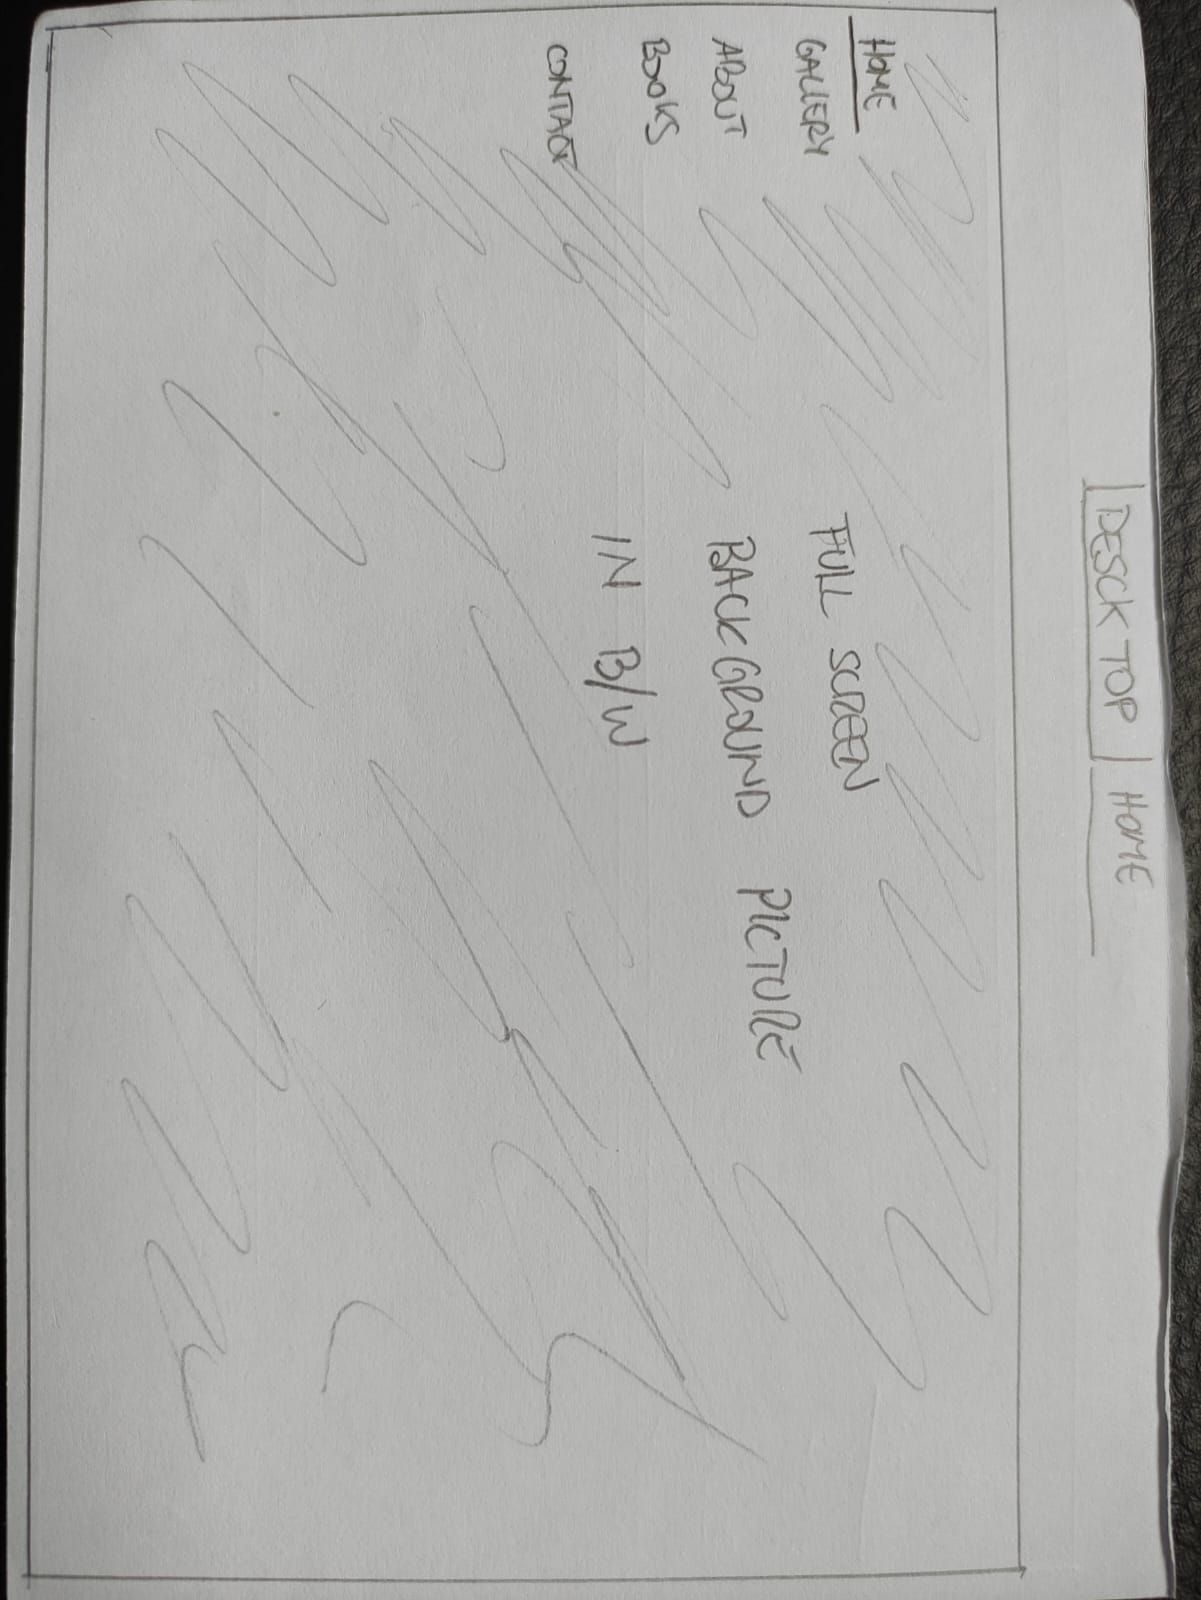 DESCKTOP HOME
HOME
GALLERY
ABOUT
BOOKS
CONTACT
FULL SCREEN
BACKGROUND PICTURE
IN B/W